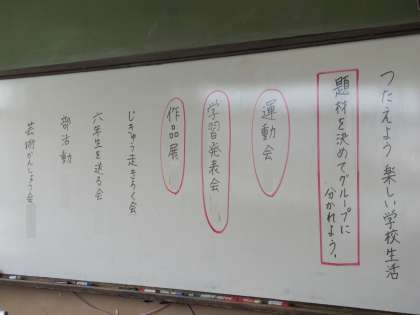 つたえよう 楽しい学校生活
題材を決めてグループに
分かれよう。
運動会
学習発表会
作品展
じきゅう走きろく会
六年生を送る会
部活動
芸術かんしょう会